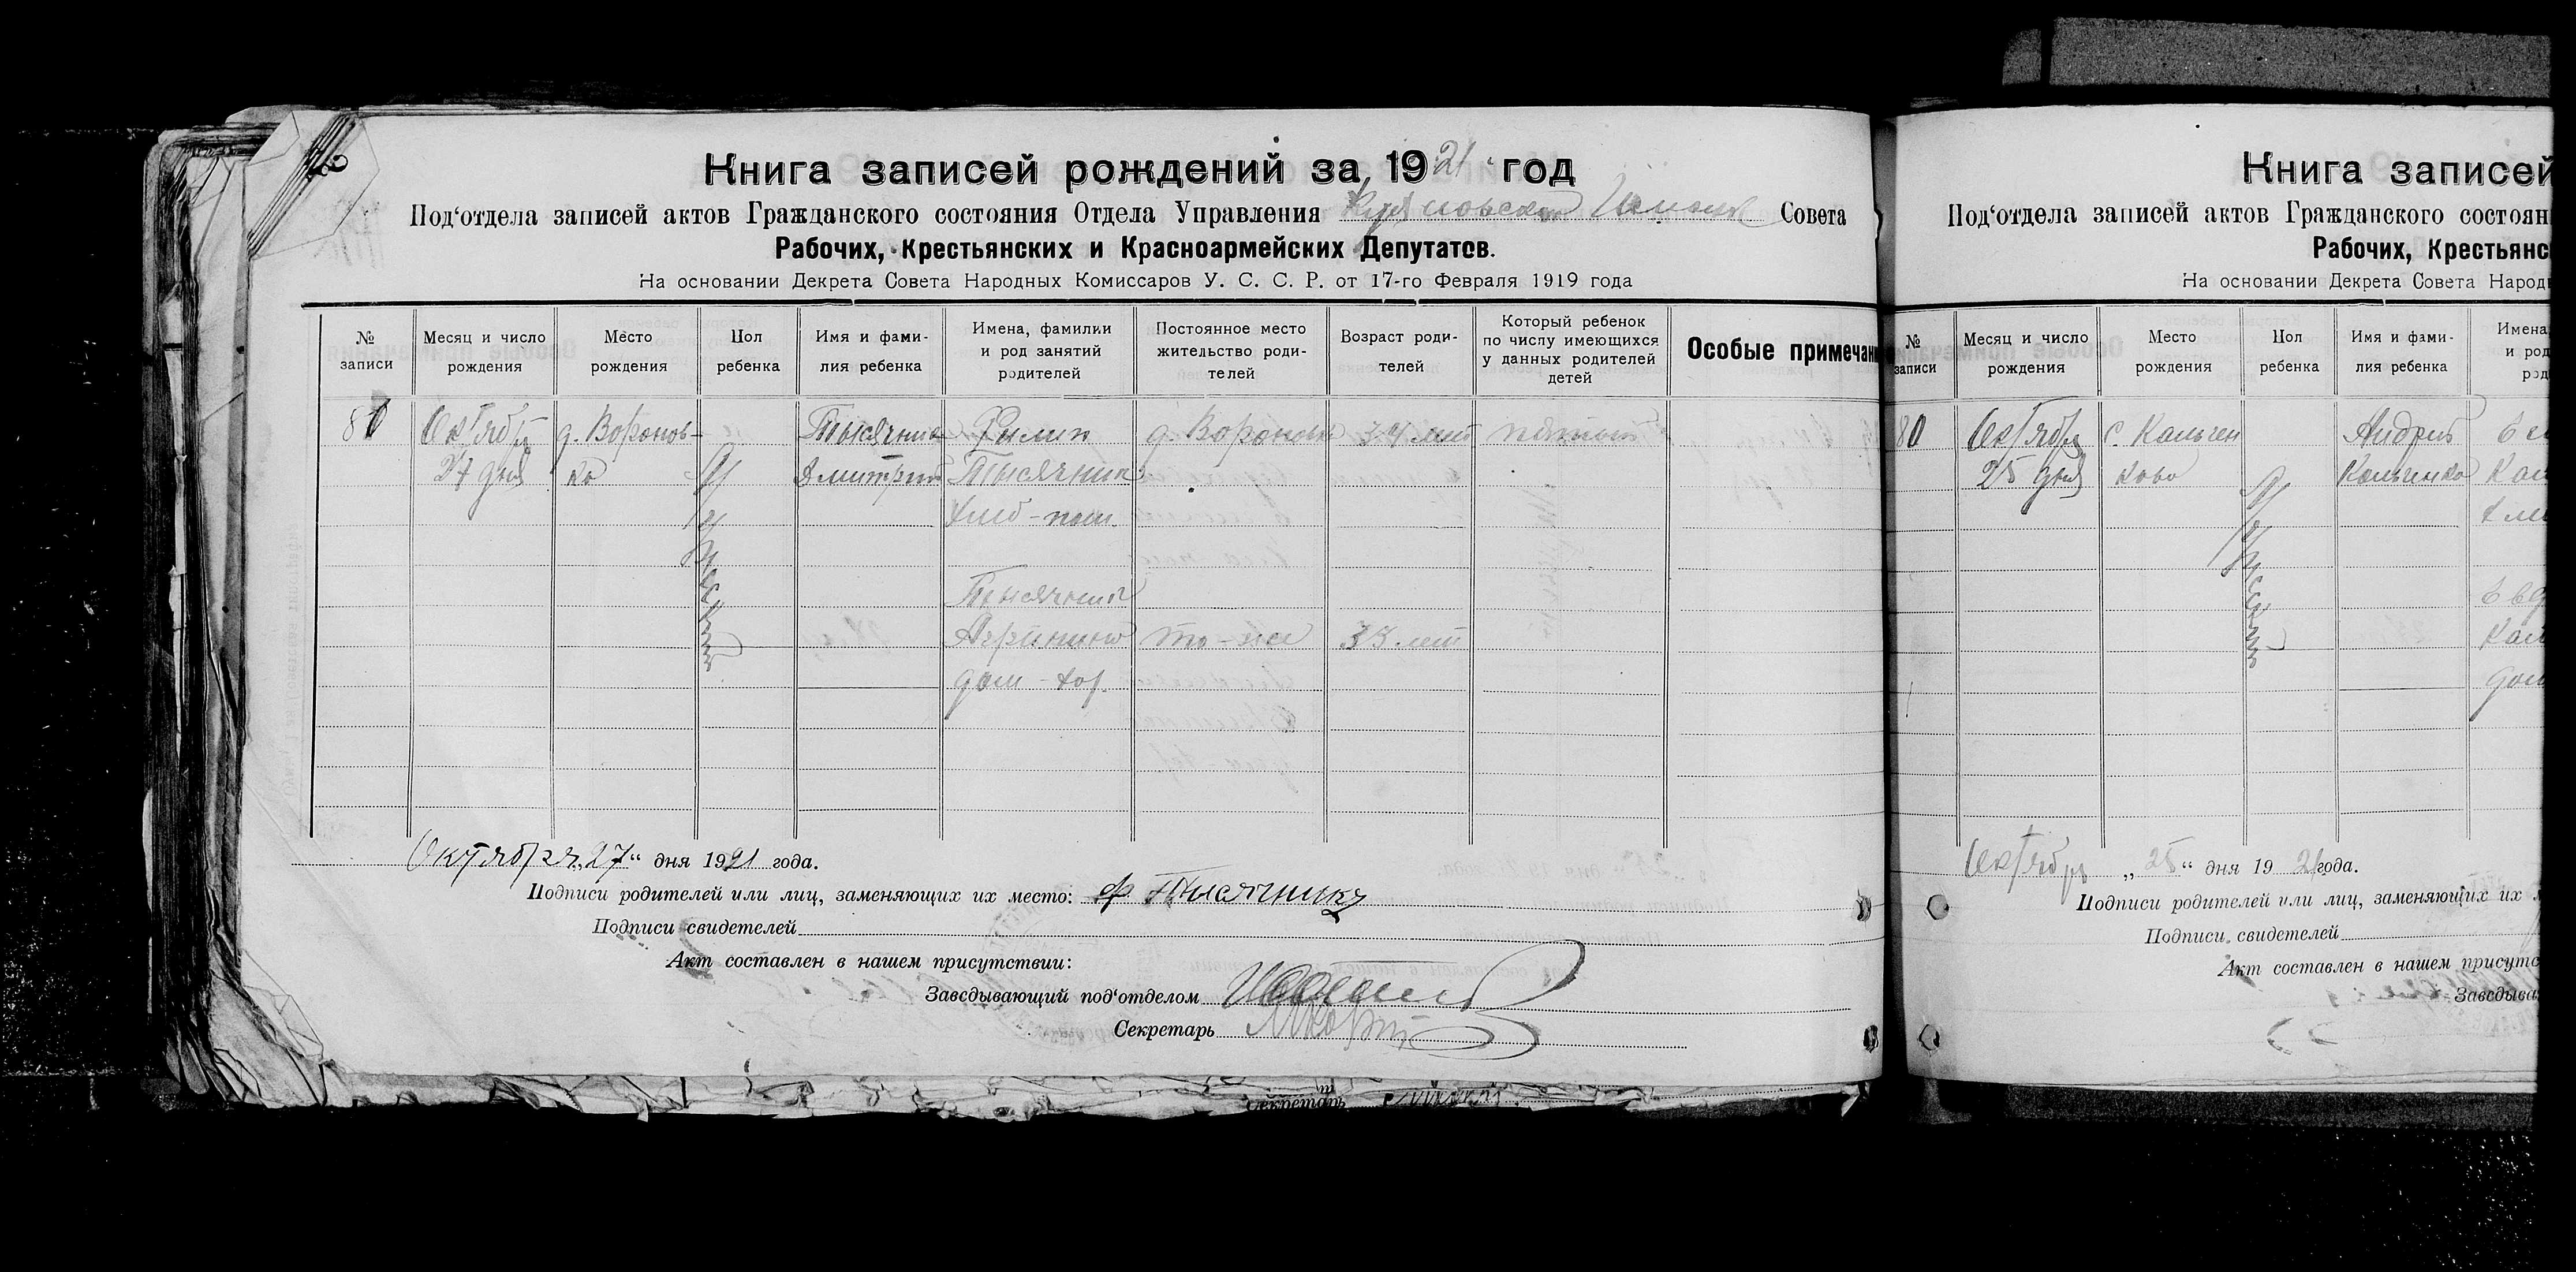 Книга записей рождений за 1921 год
Под‘отдела записей актов Гражданского состояния Отдела Управления Совета
Рабочих, Крестьянских и Красноармейских Депутатов.
На основании Декрета Совета Народных Комиссаров У. С. С. Р. от 17-го Февраля 1919 года
№ записи
Месяц и число рождения
Место рождения
Пол ребенка
Имя и фами-
лия ребенка
Имена, фамилии
и род занятий
родителей
Постоянное место
жительство роди-
телей
Возраст роди-
телей
Который ребенок
по числу имеющихся
у данных родителей
детей
Особые примечан
81
Октября
27 дня
д. Воронов-
ка
Мужской
Тысячник
Дмитрий
Филип
Тысячник
хлеб-паш.
Тысячник
дом-хоз.
д. Воронов
то-же
34 лет
33 лет
Октября „27“ дня 1921 года.
Подписи родителей или лиц, заменяющих их место: Ф Тысячник
Подписи свидетелей
Акт составлен в нашем присутствии:
Заведывающий под‘отделом
Секретарь
Секретарь
Книга записей
Под‘отдела записей актов Гражданского состоян
Рабочих, Крестьянс
На основании Декрета Совета Народн
№ записи
Месяц и число рождения
Место рождения
Пол ребенка
Имя и фами-
лия ребенка
Имена
и род
род
80
Октября
25 дня
с. Кальчи
ново
Мужской
Андрей
Кальченко
Октябрь „25“ дня 1921 года.
Подписи родителей или лиц, заменяющих их
Подписи свидетелей
Акт составлен в нашем присутс
Заведыва